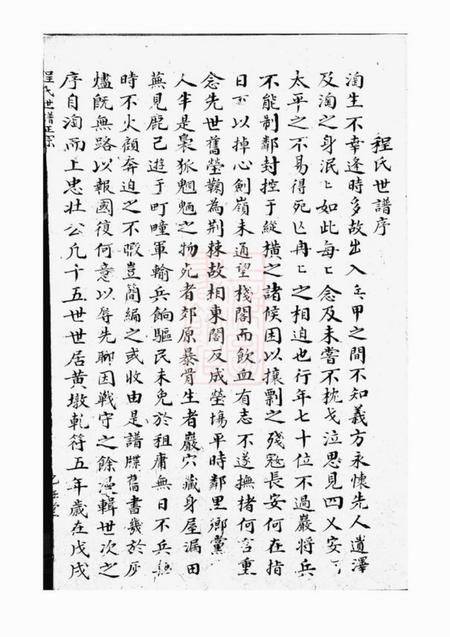 程氏世譜序
淘生不幸逢時多故出入兵甲之間不知義方永懷先人遺澤
及淘之身泯〻如此每〻念及未嘗不枕戈泣思見四乂安
太平之不易得死亾冉〻之相迫也行年七十位不過巖將兵
不能制鄰封控于縱橫之諸侯困以攘剽之殘冦長安何在指
日下以掉心劍嶺未通望棧閣而飲血有志不遂撫楮何言重
念先世舊塋鞠為荆棘故相東閣反成塋塲平時鄰里鄉黨
人半是梟狐魍魎之物死者郊原暴骨生者巖穴藏身屋漏田
蕪見鹿已遊于町疃軍輸兵餉驅民未免於租庸無日不兵
時不火顛奔迫之不暇豈簡編之或收由是譜牒舊書幾於灰
燼既無路以報國復何意以辱先聊因戰守之餘輯世次之
序自淘而上忠壯公凡十五世世居黃墩乾符五年歲在戊戌
程氏世譜正宗